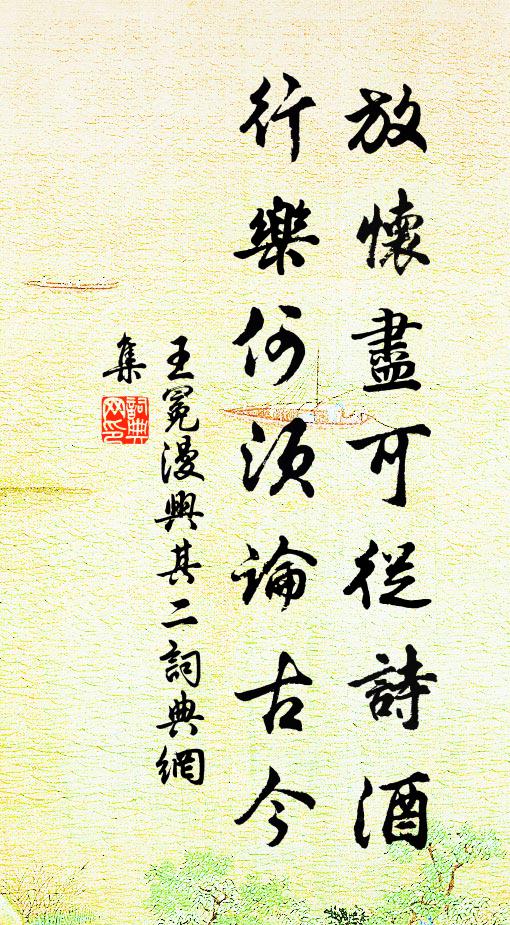 放懷盡可從詩酒
行樂何須論古今
王冕漫興其二詞典網
集
詞典
网印